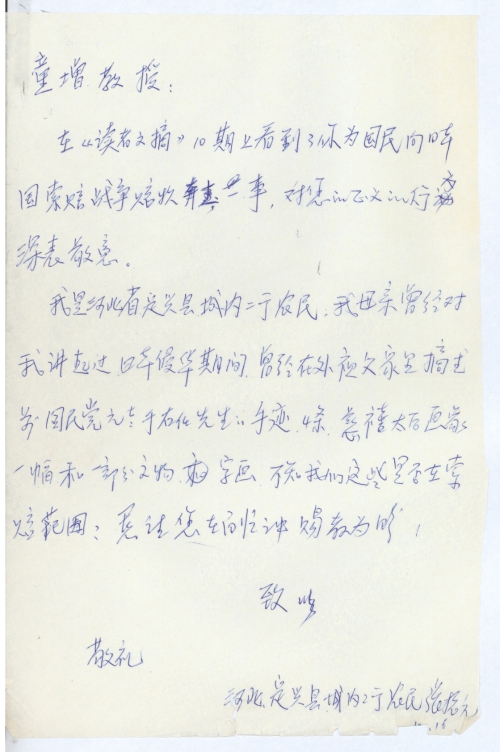 童增教授：
在《读者文摘》10期上看到了你为国民向日本
国索赔战争赔款一事，对您的正义的行为
深表敬意。
我是河北省定兴县城内二于农民，我母亲曾经对
我讲过，日本侵华期间，曾经在外家里摘走
前国民党元老于右任先生的手迹，慈禧太后画象
一幅和一部分文物字画，不知我们这些是否在索
赔范围？恳请您在百忙中赐教为盼，
致以
敬礼
河北定兴县城内二于农民张振元